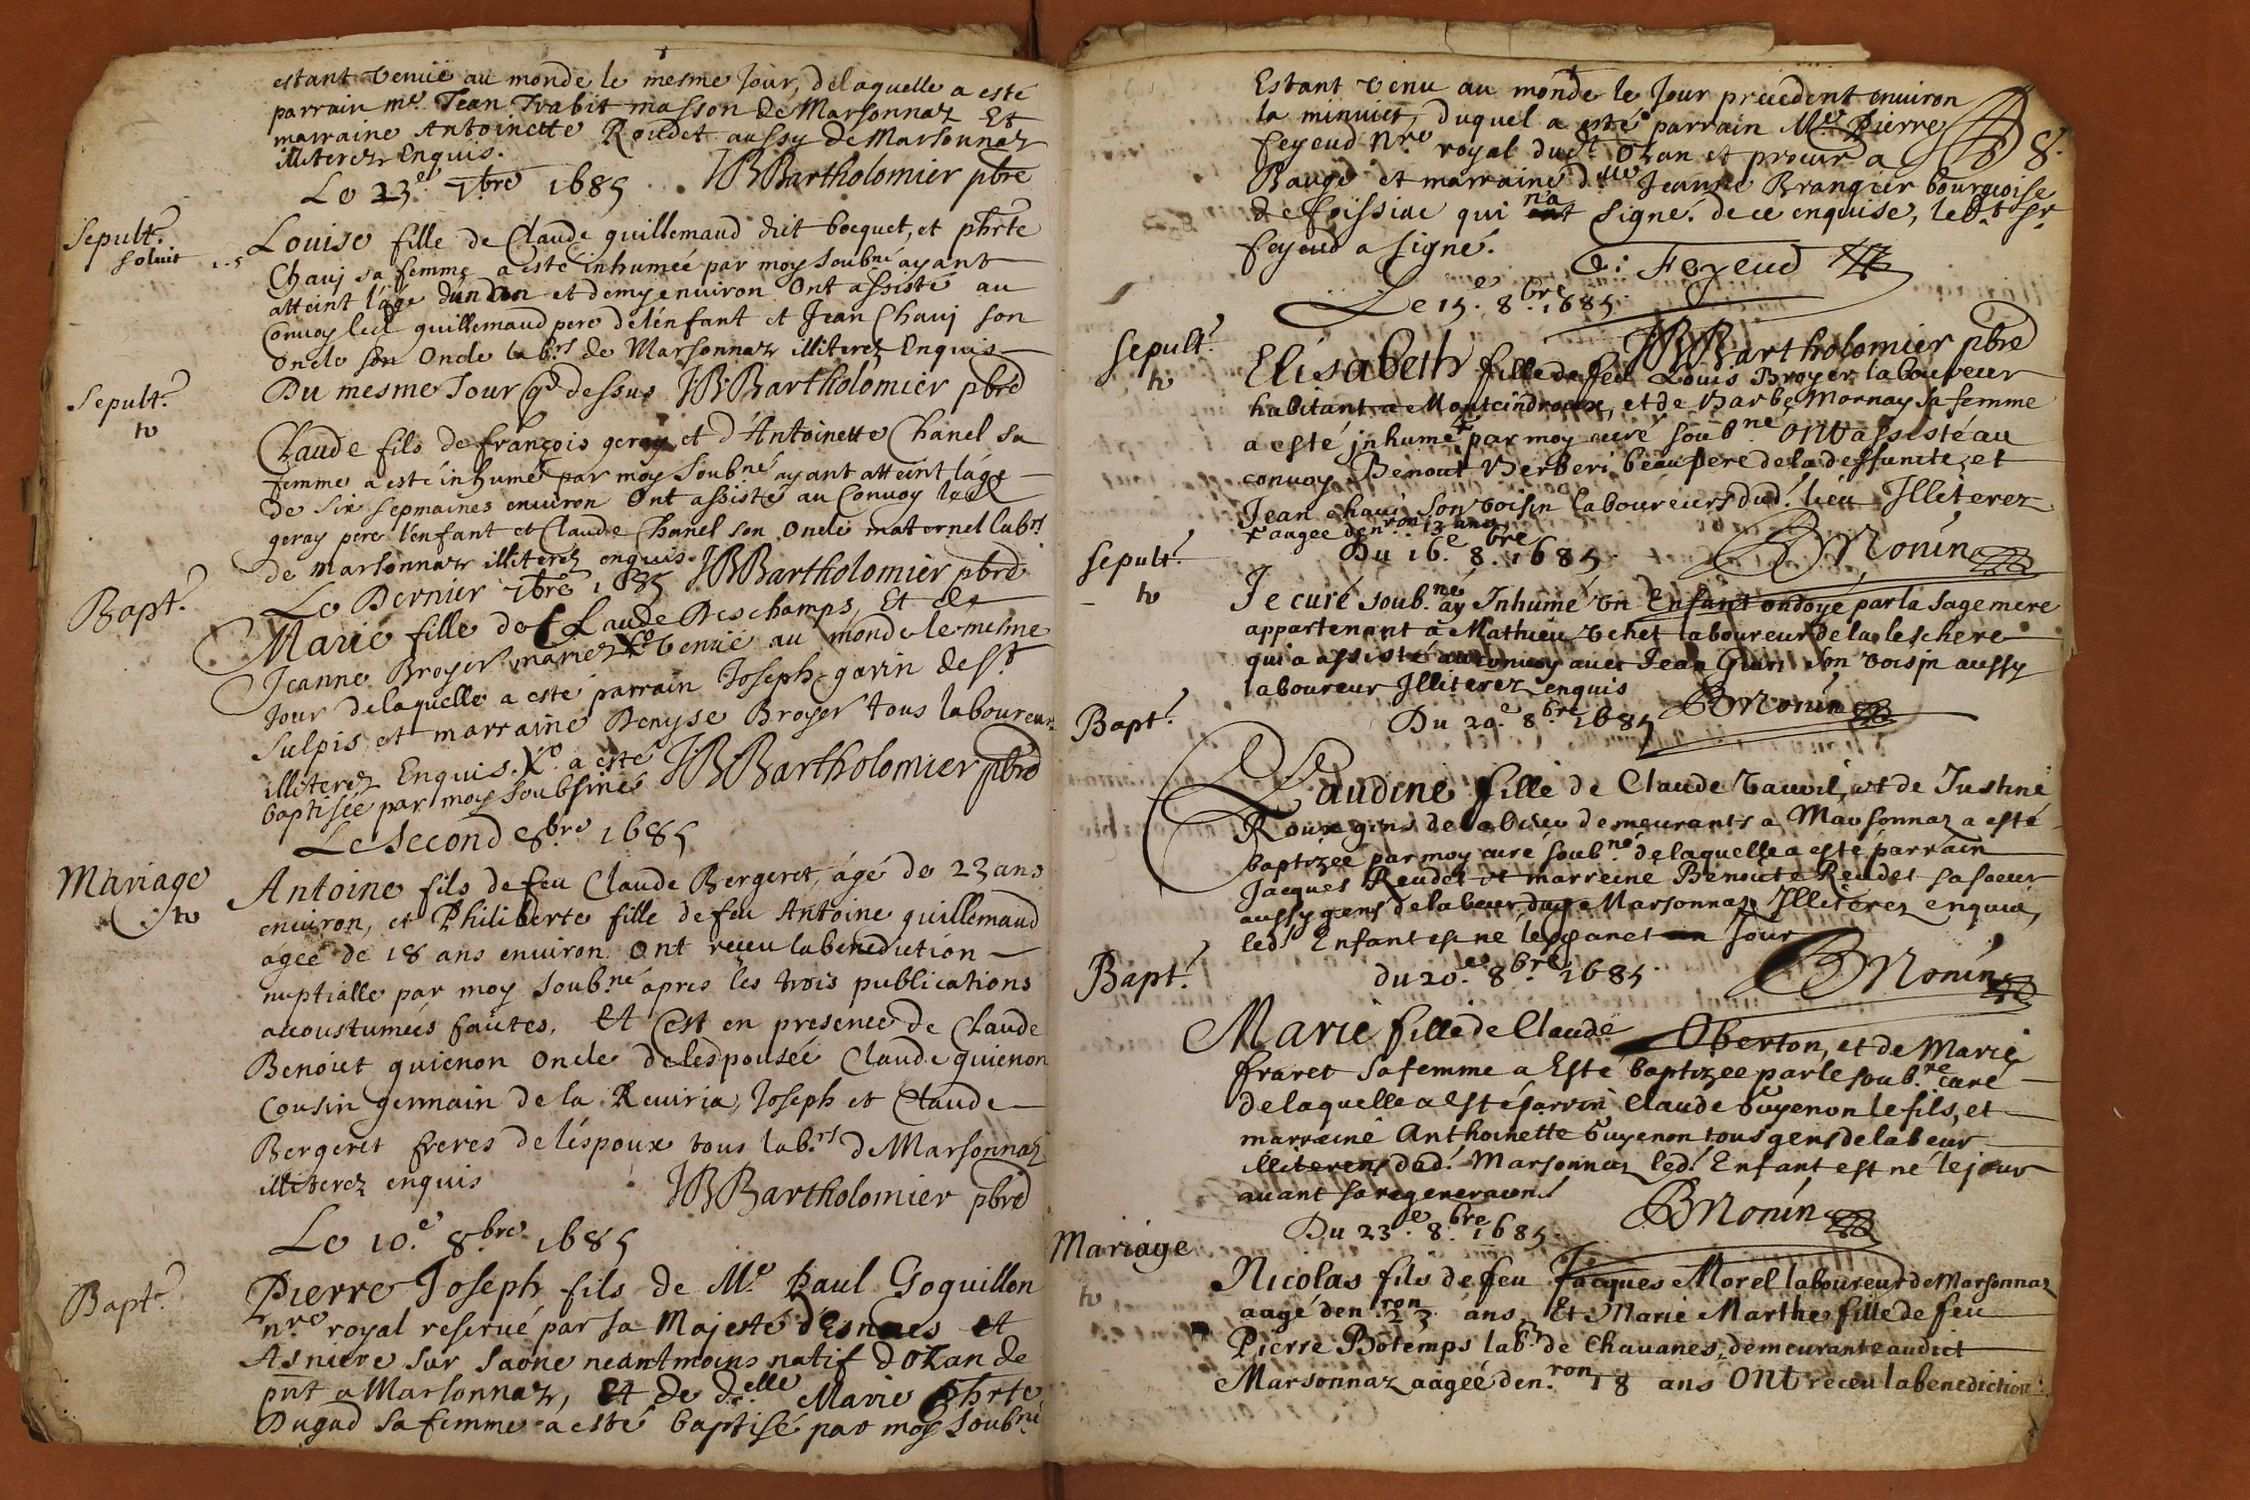 estant venüe au monde le mesme Jour, delaquelle a esté
parrain me. Jean Trabit masson de Marsonnaz Et
marraine Antoinette Roudet aussy de Marsonnaz
illiterez Enquis.
Le 23e. 7bre 1685. JBBartholomier pbre
Sepult.
soluit
Louise fille de Claude guillemaud dit bocquet, et phrte
Chauj sa femme a esté inhumée par moy soubné ayant
atteint l'áge d'un an et demy enuiron Ont assisté au
Convoy led guillemaud pere de l'enfant et Jean Chauj son
Oncle son Oncle labrs de Marsonnaz illiterez Enquis
Sepult.
to
Du mesme Jour q dessus JBBartholomier pbre
Claude fils de françois geray et d'Antoinette Chanel sa
femme a esté inhumé par moy Soubné ayant atteint láge
de six sepmaines enuiron Ont assisté au Convoy led
geray pere l'enfant et Claude Chanel son Oncle maternel labrs
de marsonnaz illiterez enquis. JBBartholomier pbre
Bapt.
Le Dernier 7bre 1685
Marie fille de Claude Deschamps, Et de
Jeanne Broyer mariez Xo venüe au monde le mesme
Jour delaquelle a esté parrain Joseph gavin de st
Sulpis, et marraine Denyse Broyer tous laboureurs
illiterez Enquis. Xo. a esté JBBartholomier pbre
baptisée par moy soubsiné
Le Second 8bre 1685
Mariage
to
Antoine fils de feu Claude Bergeret, ágé de 23 ans
enuiron, et Philiberte fille de feu Antoine guillemaud
ágée de 18 ans enuiron Ont receu la benediction
nuptialle par moy Soubné apres les trois publications
accoustumées faites, Et c'est en presence de Claude
Benoiet guienon Oncle de lespousée Claude guienon
Cousin germain de la Reuiria, Joseph et Claude
Bergeret freres de léspoux tous labrs de Marsonnaz
illiterez enquis JBBartholomier pbre
Le 10e. 8bre 1685
Bapt.
Pierre Joseph fils de Me Paul Goquillon
nre royal reserué par sa Majesté d'Esnes et
Asniere sur saone neantmoins natif dOzan de
pnt a Marsonnaz, Et de delle Marie phrte
Dugad sa femme a esté baptisé par moy Soubné
Estant venu au monde le Jour precedent enuiron
la minuiet, duquel a esté parrain Me. Pierre
feyeud Nre royal dudt Ozan et procur a
Baugé et marraine dlle Jeanne Brangier bourgeoise
de foissiac qui n'a signé. de ce enquise, ledt sr
feyeud a signé.
Feyeud
Le 15e. 8bre. 1685
JBBartholomier pbre
Sepult.
to
Elisabeth fille de feu Louis Broyer laboureur
habitant a Monteindroux, et de Barbe Mornay sa femme
a esté jnhumé+ par moy curé soubne Ont assisté au
convoy Benoit Verberi beaupere de la deffuncte, et
Jean chaui son voisin laboureurs dud. lieu Illiterez
+ aagée denron 13 ans
Sepult.
to
Du 16e. 8bre. 1685 BMonin
Je curé soub.né ay Inhumé Vn Enfant ondoyé par la sage mere
appartenant à Mathieu Vehet laboureur de la leschere
qui a assisté au convoy auec Jean Guri son voisin aussy
laboureur Illiterez enquis BMonin
Bapt.
Du 20e 8bre 1685
Claudine fille de Claude Vauvil, et de Justine
Roux gens de labeur demeurants a Marsonnaz a esté
baptizée par moy curé soubne delaquelle a esté parrain
Jacques Reudet et marreine Benoite Reudet sa soeur
aussy gens delabeur dud Marsonnaz Illiterez enquis,
led. Enfant est né le jour
BMonin
Bapt.
du 20e. 8bre. 1685
Marie fille de Claude Oberton, et de Marie
fraret sa femme a Esté baptizée par le soub.ne curé
delaquelle a esté parrin Claude Guyenon le fils, et
marraine Anthoinette Guyenon tous gens de labeur
illiterens dud. Marsonnaz led. Enfant est né le jour
auant sa regeneraon. BMonin
Mariage
to
Du 23e. 8bre. 1685.
Nicolas fils de feu Jacques Morel laboureur de Marsonnaz
aagé den.ron 23 ans Et Marie Marthe fille de feu
Pierre Botemps labr de Chauanes, demeurante audict
Marsonnaz aagée den.ron 18 ans Ont receu la benediction